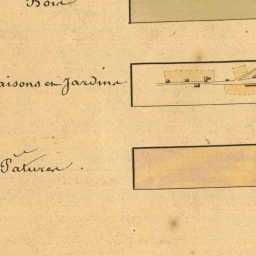 Bois
aisons et Jardins
Patures.